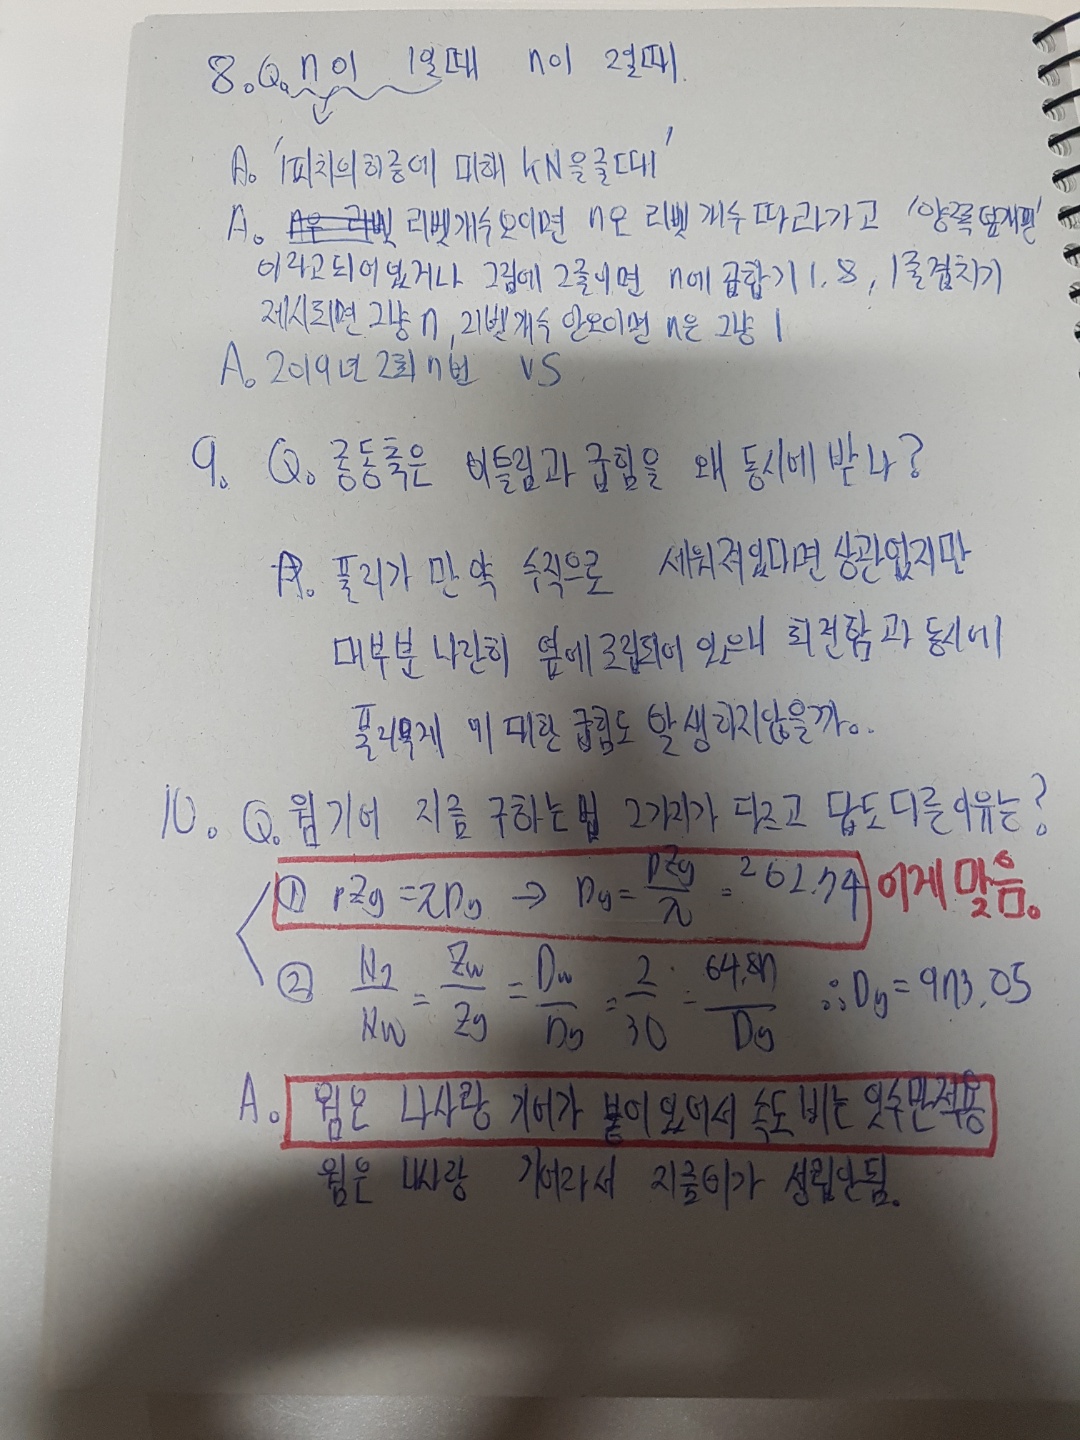 8. Q. n이 1일때 n이 2일때.
A. '1피치의 하중에 대해 kN을 구할때'
A. 리벳개수 보이면 n은 리벳 개수 따라가고 '양쪽 덮개판'
이라고 되어 있거나 그림에 2줄이면 n에 곱하기 1.8, 1줄겹치기
제시되면 그냥 n, 리벳개수 안보이면 n은 그냥 1
A. 2019년 2회 n번 VS
9. Q. 중동축은 비틀림과 굽힘을 왜 동시에 받나?
A. 풀리가 만약 수직으로 세워져있다면 상관없지만
대부분 나란히 옆에 조립되어 있으니 회전함과 동시에
풀리무게에 대한 굽힘도 발생하지않을까..
10. Q. 웜기어 지름 구하는법 2가지가 다르고 답도 다른이유는?
① pZg = πDg → Dg = pZg/π = 262.74 이게 맞음.
② N2/Nw = Zw/Zg = Dw/Dg = 2/30 = 64.87/Dg ∴ Dg = 973.05
A. 웜은 나사랑 기어가 붙어있어서 속도비는 잇수만적용
웜은 나사랑 기어라서 지름비가 성립안됨.